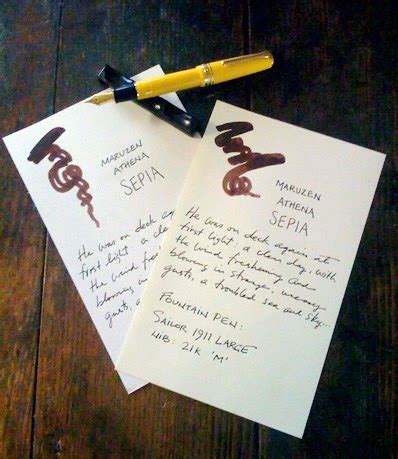 MARUZEN
ATHENA
SEPIA
He was on deck again
first light, a clea
the wind fres
blowing in
gusts, a
MARUZEN
ATHENA
SEPIA
He was on deck again at
first light, a clear day, with
the wind freshening and
blowing in strange, uneasy
gusts, a troubled sea and sky...
FOUNTAIN PEN:
SAILOR 1911 LARGE
NIB: 21K 'M'